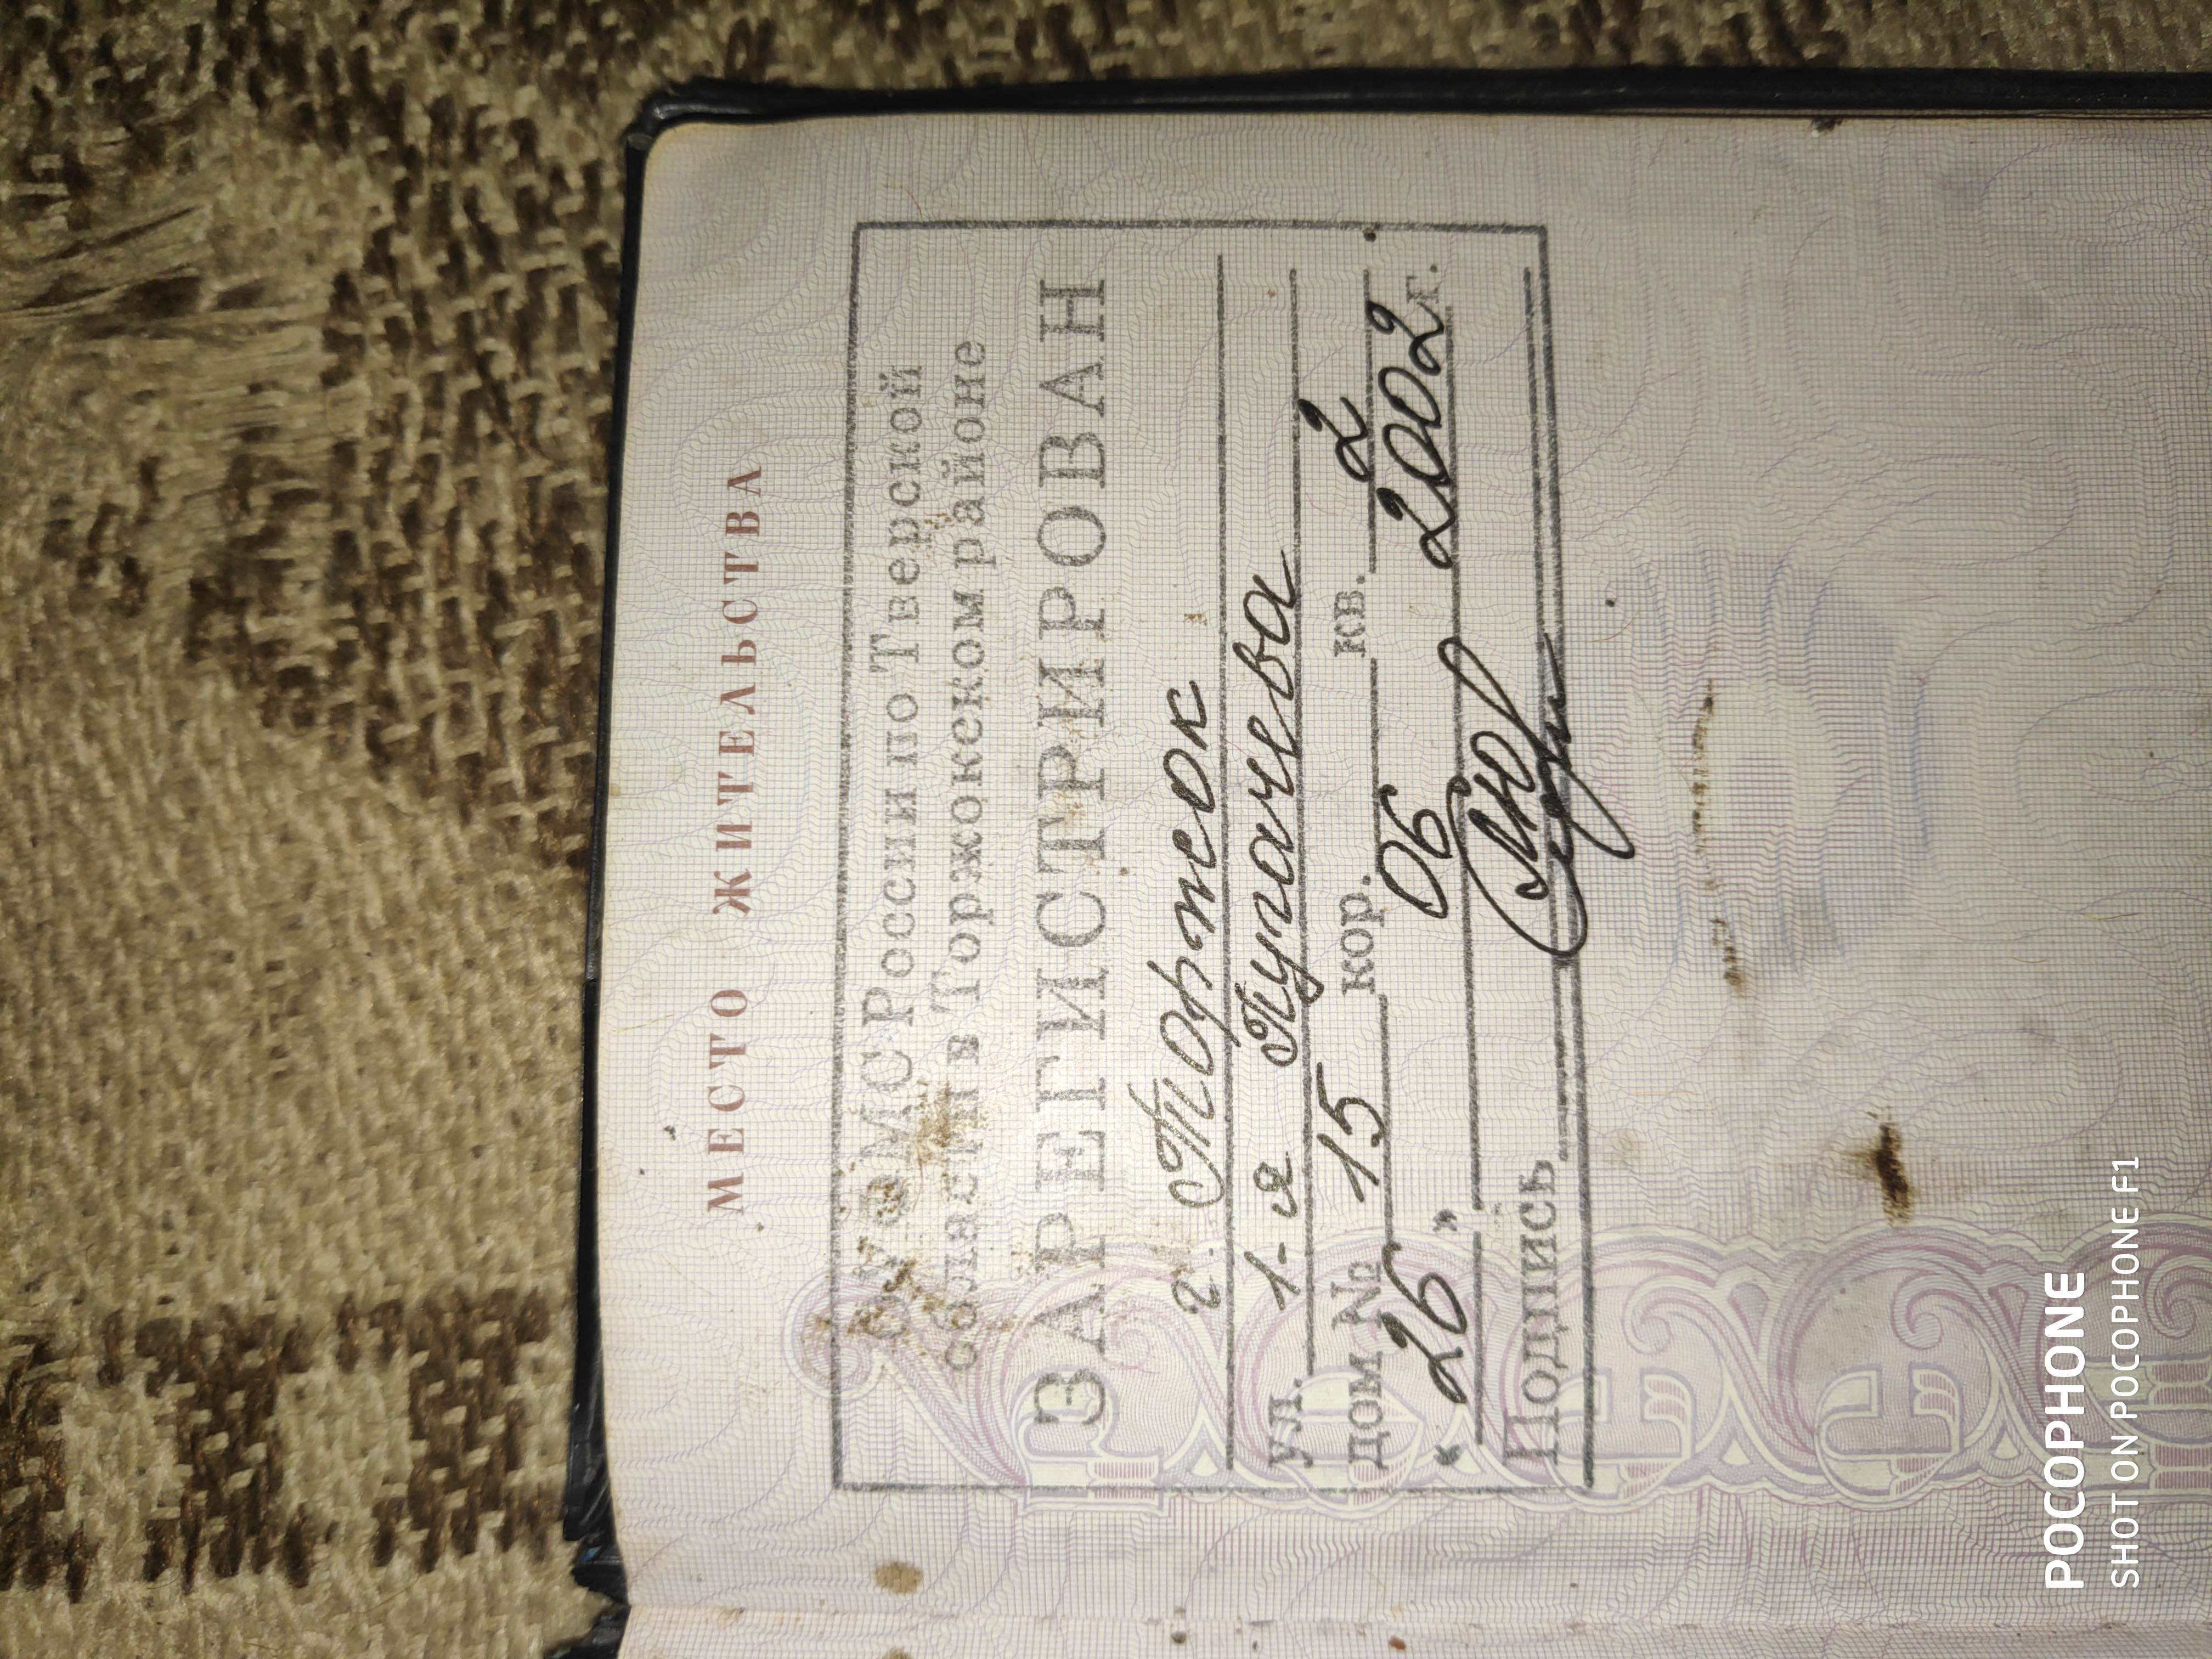 МЕСТО ЖИТЕЛЬСТВА
ОУФМС России по Тверской
области в Торжокском районе
ЗАРЕГИСТРИРОВАН
г. Торжок
ул. 1-я Пугачева
дом № 15 кор. кв. 2
« 26 » 06 2002 г.
Подпись
POCOPHONE
SHOT ON POCOPHONE F1